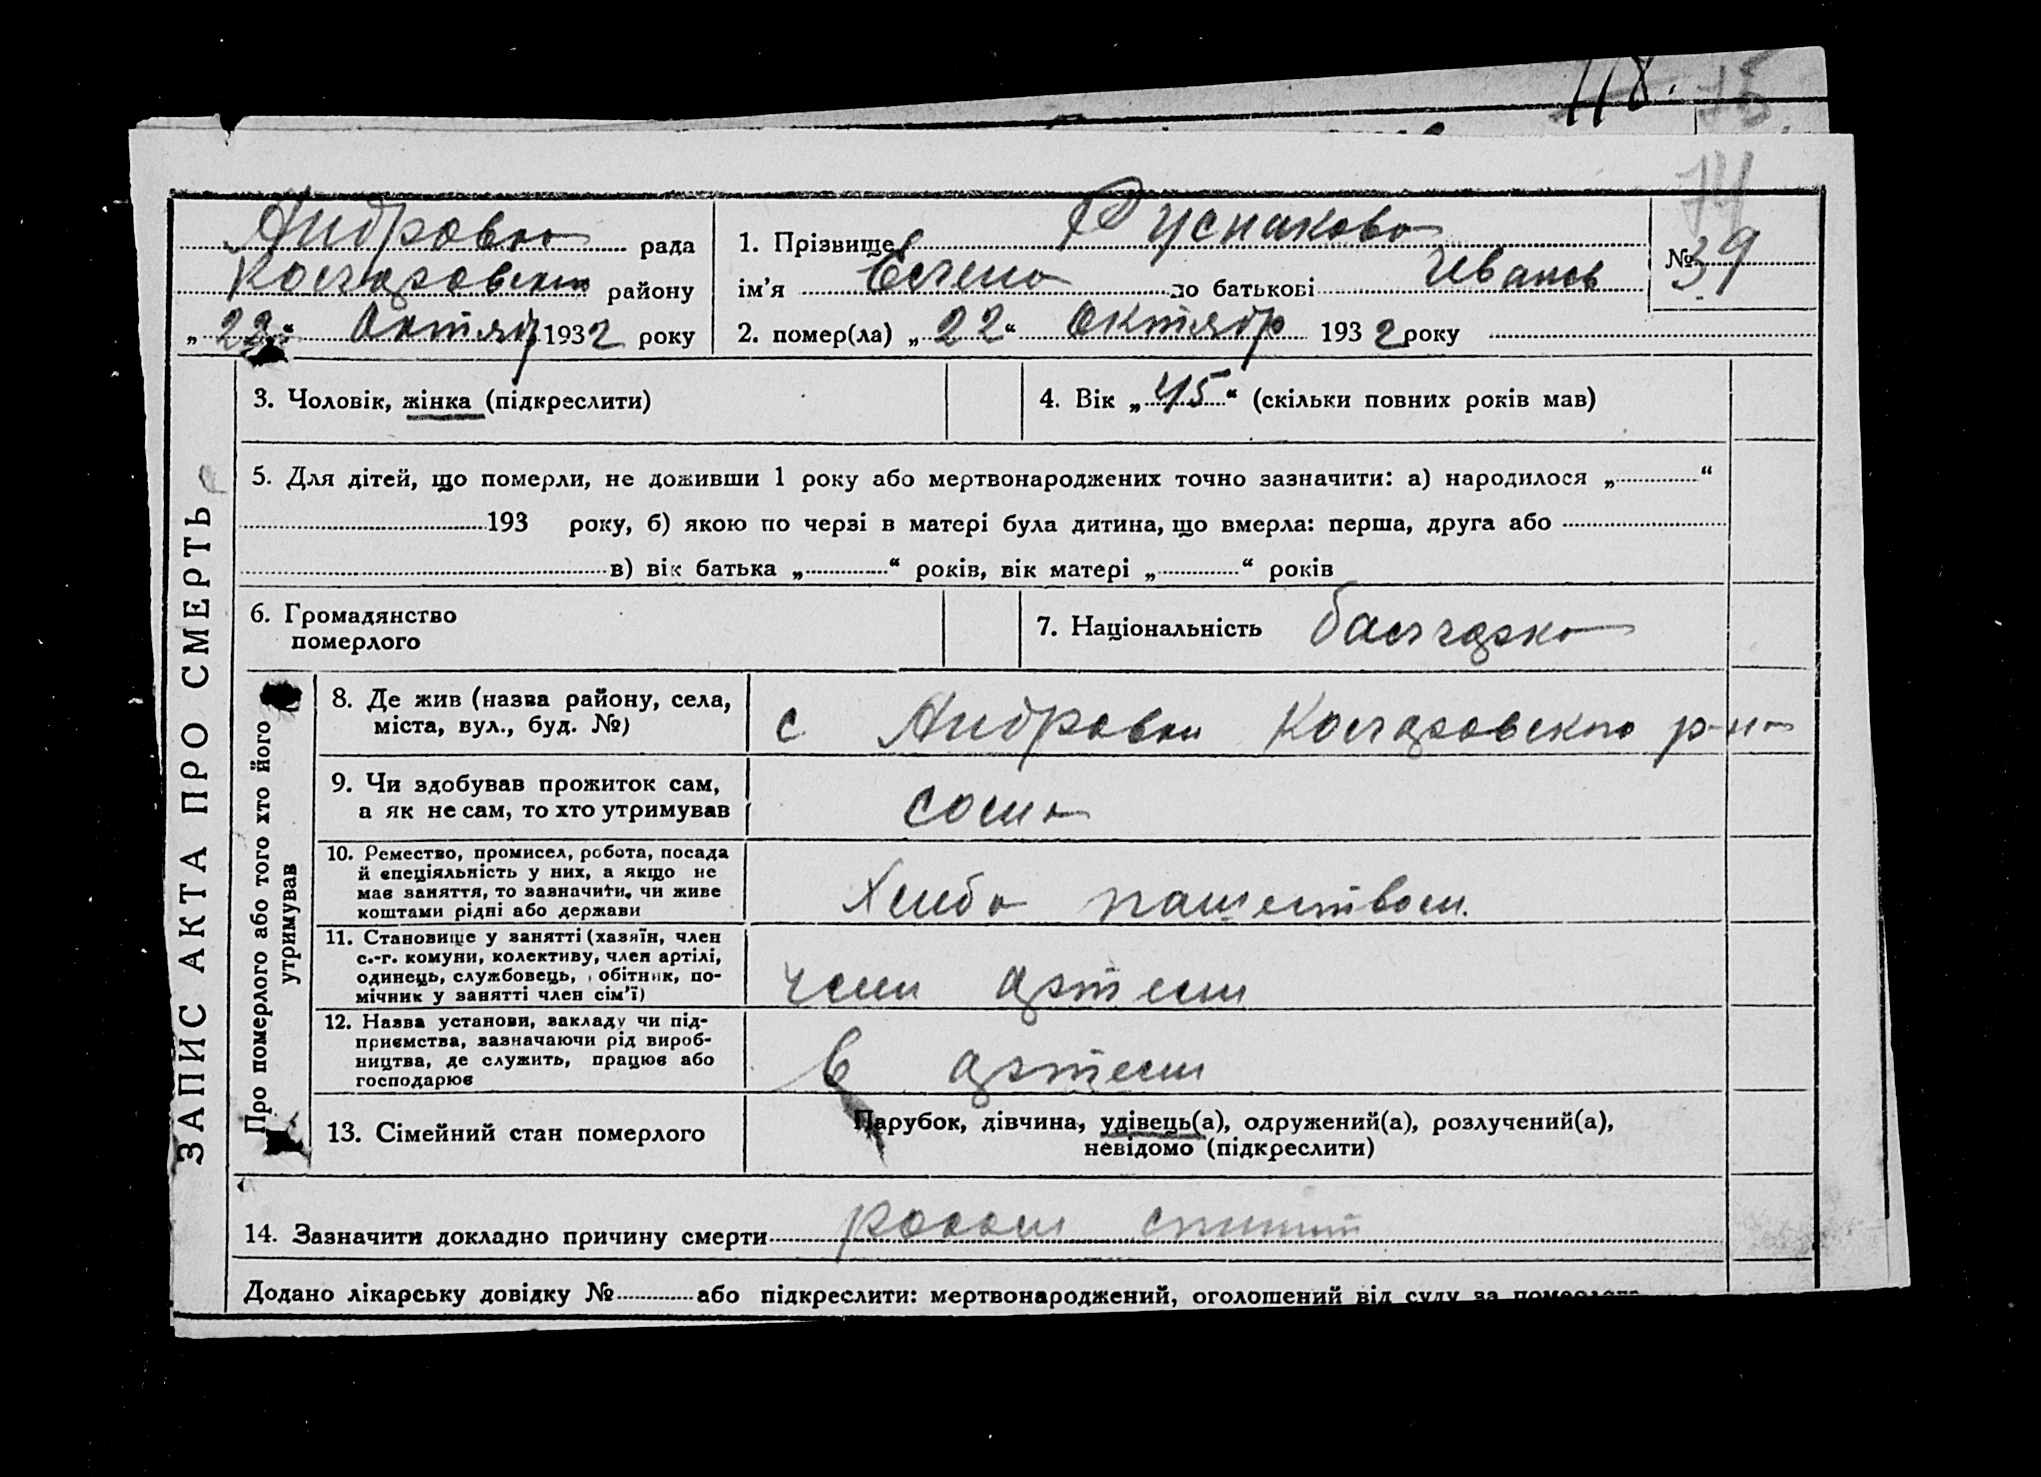 118. 75
74
Андровка рада
Коларовского району
„ 22 “ Октябр 1932 року
1. Прізвище Руснакова
ім'я Елена по батькові Иванов
2. помер(ла) „ 22 “ Октябр 1932 року
№ 39
ЗАПИС АКТА ПРО СМЕРТЬ
3. Чоловік, жінка (підкреслити)
4. Вік „ 45 “ (скільки повних років мав)
5. Для дітей, що померли, не доживши 1 року або мертвонароджених точно зазначити: а) народилося „ “
193 року, б) якою по черзі в матері була дитина, що вмерла: перша, друга або
в) вік батька „ “ років, вік матері „ “ років
6. Громадянство
померлого
7. Національність болгарка
Про померлого або того хто його
утримував
8. Де жив (назва району, села,
міста, вул., буд. №)
с Андровки Коларовского р-на
9. Чи здобував прожиток сам,
а як не сам, то хто утримував
сома
10. Ремество, промисел, робота, посада
й спеціяльність у них, а якщо не
має заняття, то зазначити, чи живе
коштами рідні або держави
Хлебо пашеством.
11. Становище у занятті (хазяїн, член
с.-г. комуни, колективу, член артілі,
одинець, службовець, обітник, по-
мічник у занятті член сім'ї)
член артели
12. Назва установи, закладу чи під-
приємства, зазначаючи рід вироб-
ництва, де служить, працює або
господарює
в артели
13. Сімейний стан померлого
Парубок, дівчина, удівець(а), одружений(а), розлучений(а),
невідомо (підкреслити)
14. Зазначити докладно причину смерти
Додано лікарську довідку № або підкреслити: мертвонароджений, оголошений від суду за померлого